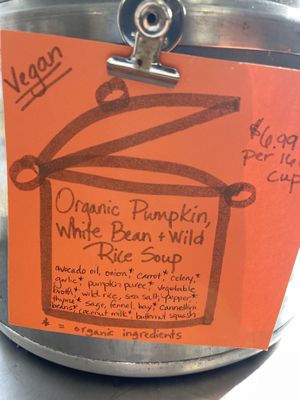 Vegan
$6.99
per 16
cup
Organic Pumpkin,
White Bean + Wild
Rice Soup
avocado oil, onion,* carrot,* celery,*
garlic,* pumpkin puree,* vegetable
broth,* wild rice, sea salt, pepper,*
thyme,* sage, fennel, bay,* cannellini
beans,* coconut milk,* butternut squash
* = organic ingredients